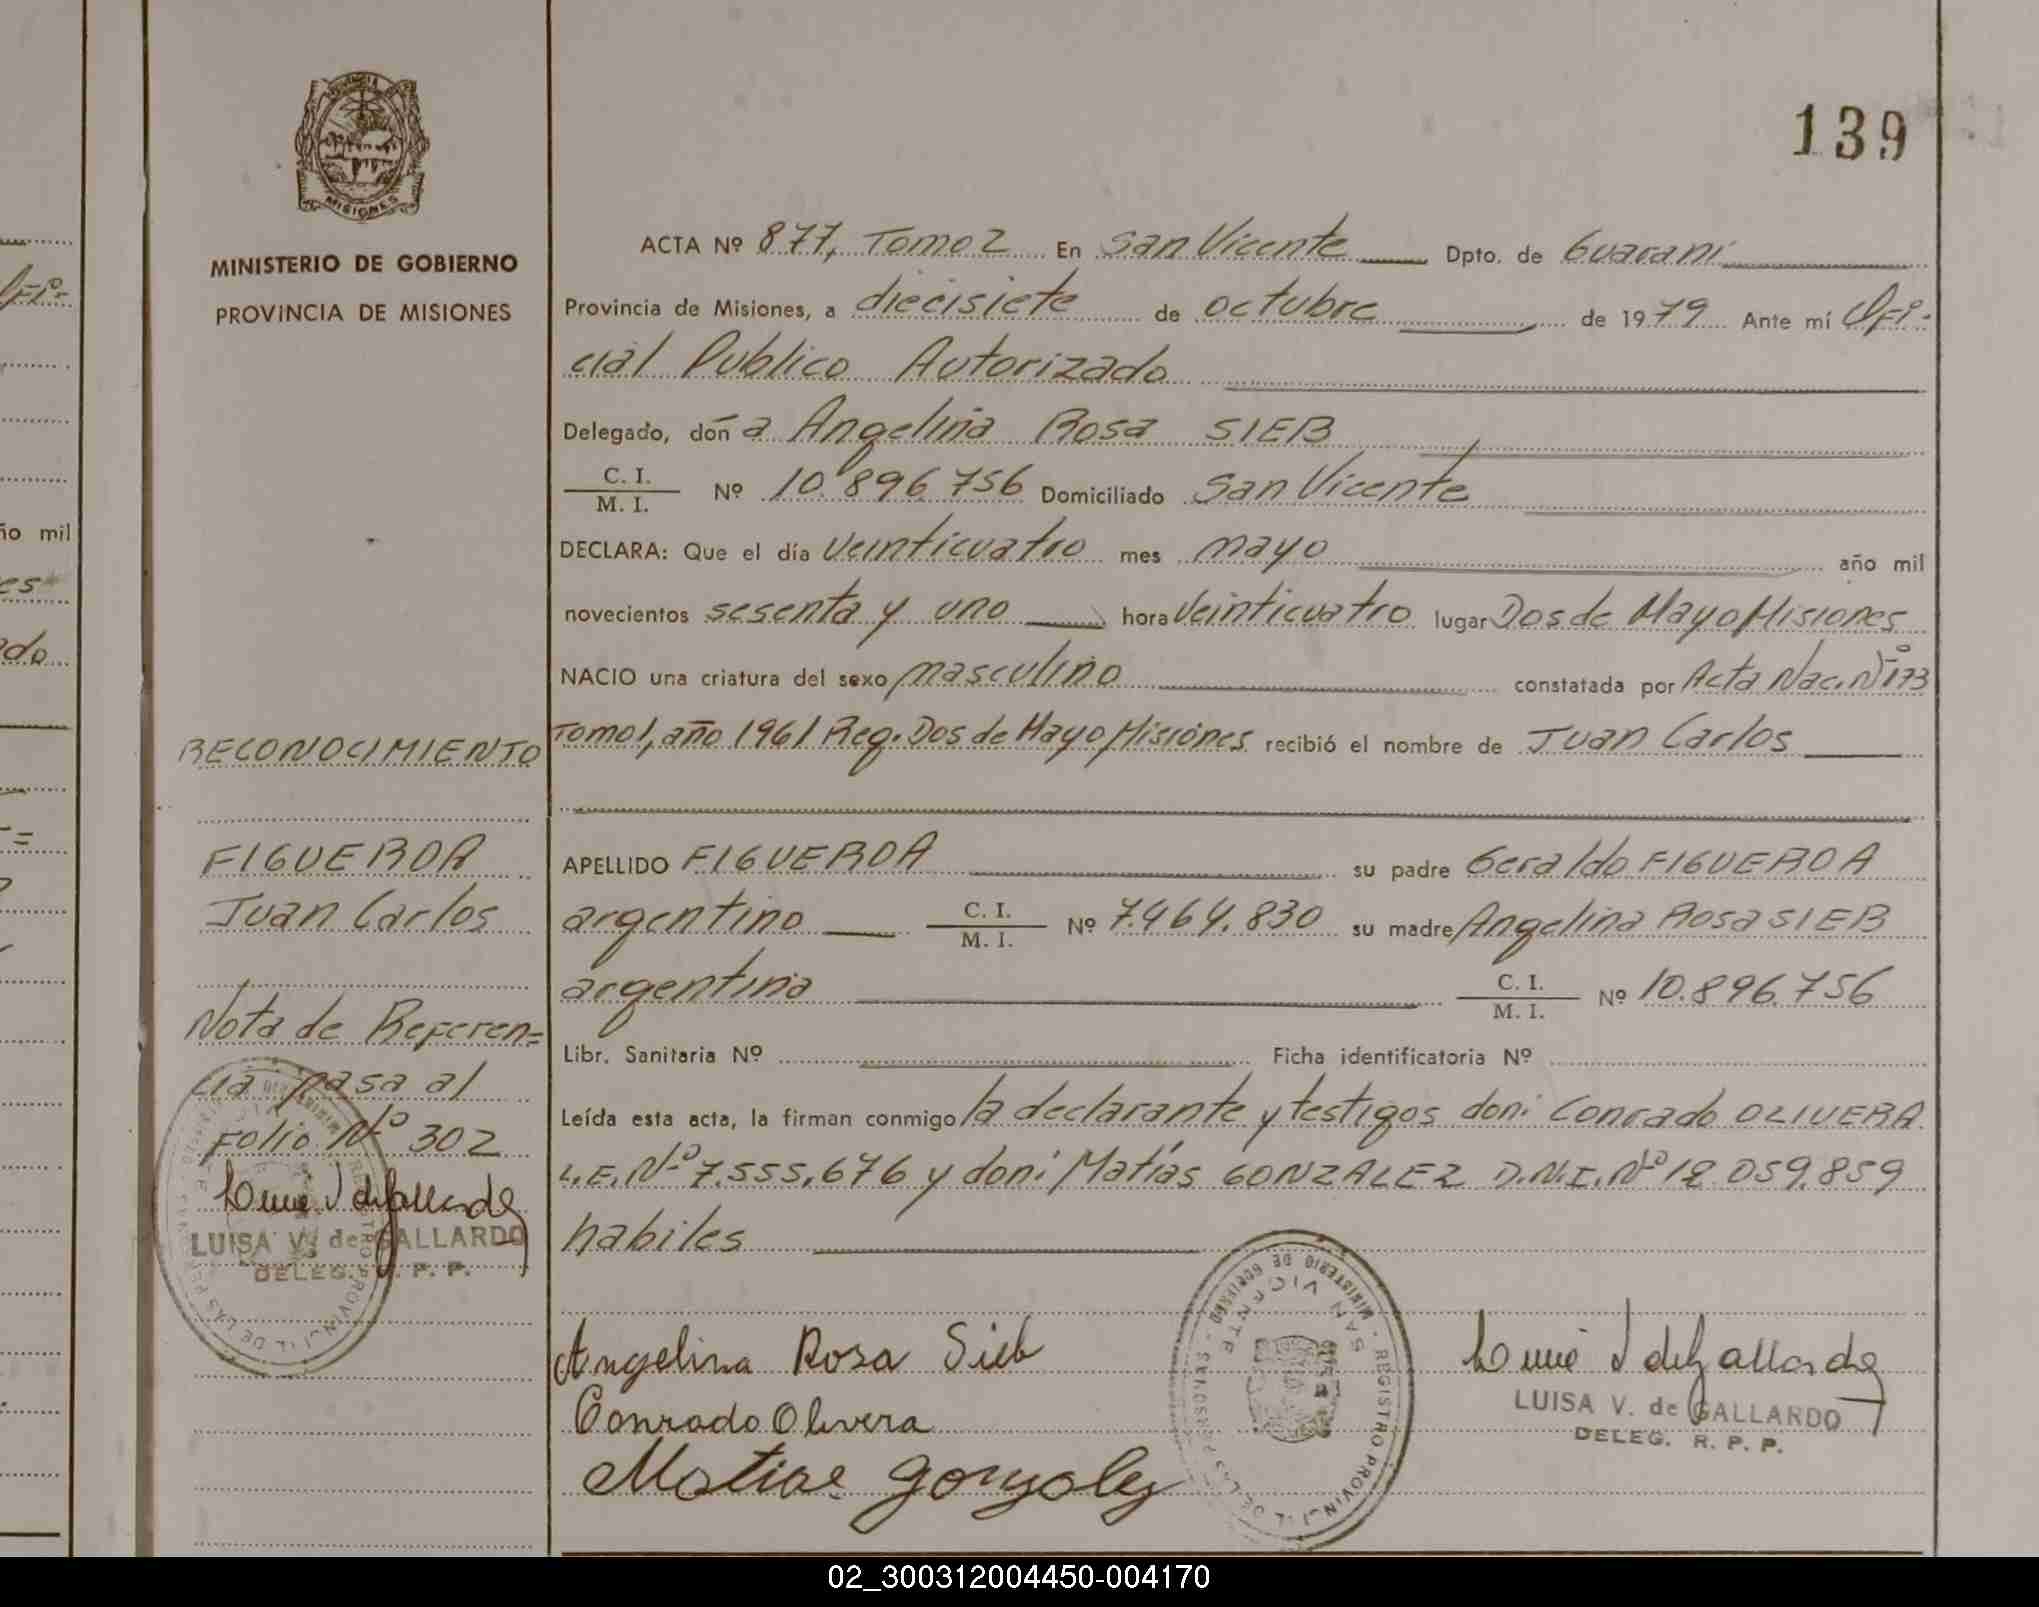 139
MINISTERIO DE GOBIERNO
PROVINCIA DE MISIONES
ACTA Nº 877, Tomo 2 En San Vicente Dpto. de Guaraní
Provincia de Misiones, a diecisiete de octubre de 1979 Ante mí Ofi-
cial Publico Autorizado
Delegado, don a Angelina Rosa SIEB
C. I.
M. I. Nº 10.896.756 Domiciliado San Vicente
DECLARA: Que el día veinticuatro mes mayo año mil
novecientos sesenta y uno hora veinticuatro lugar Dos de Mayo Misiones
NACIO una criatura del sexo masculino constatada por Acta Nac. Nº 173
Tomo 1, año 1961 Reg. Dos de Mayo Misiones recibió el nombre de Juan Carlos
APELLIDO FIGUEROA su padre Geraldo FIGUEROA
argentino C. I. M. I. Nº 7.464.830 su madre Angelina Rosa SIEB
argentina C. I. M. I. Nº 10.896.756
Libr. Sanitaria Nº Ficha identificatoria Nº
Leída esta acta, la firman conmigo la declarante y testigos don: Conrado OLIVERA
L.E. Nº 7.555.676 y don: Matías GONZALEZ D.N.I. Nº 12.059.859
habiles
Angelina Rosa Sieb
Conrado Olivera
Matias Gonzalez
LUISA V. de GALLARDO
DELEG. R. P. P.
MINISTERIO DE GOBIERNO - REGISTRO PROVINCIAL DE LAS PERSONAS
SAN VICENTE
RECONOCIMIENTO
FIGUEROA
Juan Carlos
Nota de Referen=
cia pasa al
Folio Nº 302
LUISA V. de GALLARDO
DELEG. R. P. P.
año mil
02_300312004450-004170